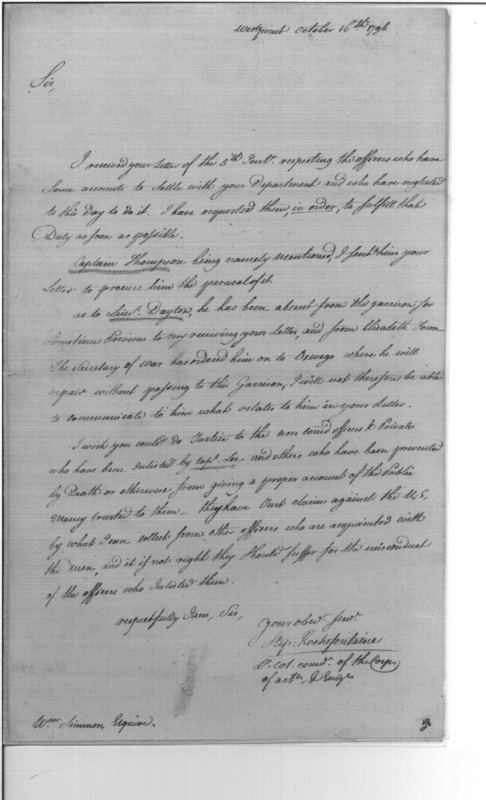 Westpoint October 16th 1796.
Sir,
I received your Letter of the 5th Inst. respecting the officers who have
some accounts to settle with your Department and who have neglected
to this day to do it. I have requested them, in order, to fulfill that
Duty as soon as possible.
Captain Thompson being namely mentioned, I sent him your
Letter to procure him the perusal of it.
as to Lieut. Dayton, he has been absent from the garrison for
sometime Previous to my receiving your Letter, and from Elisabeth Town
The Secretary of war has ordered him on to Oswego where he will
repair without passing to this Garrison, I will not therefore be able
to communicate to him what relates to him in your Letter.
I wish you could do Justice to the non comd officers & Privates
who have been Inlisted by Capt. Lee and others who have been prevented
by Death or otherwise from giving a proper account of the Public
money trusted to them. they have Just claims against the U.S,
by what I can collect from other officers who are acquainted with
the men, and it if not right they should suffer for the misconduct
of the officers who Inlisted them.
respectfully I am, Sir,
your obedt. servt.
Step: Rochefontaine
Lt. Col. comdt. of the Corps
of arts. & Engrs
Wm Simmon, Esquire.